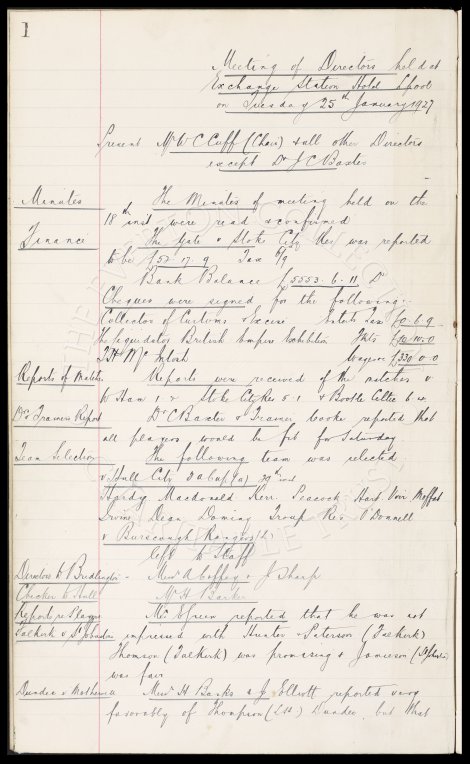 1
Meeting of Directors held at
Exchange Station Hotel L'pool
on Tuesday 25th January 1927
Present Mr W C Cuff (Chair) & all other Directors
except Dr J C Baxter
Minutes The Minutes of meeting held on the
18th inst were read & confirmed
Finance The Gate v Stoke City Res was reported
to be £52.17.9 Tax 6/9
Bank Balance £5553.6.11 Dr
Cheques were signed for the following:-
Collector of Customs & Excise Entets Tax £0.6.9
The liquidator British Empire Exhibition £10.10.0
T H McIntosh Wages £330.0.0
Reports of Matches Reports were received of the matches v
W Ham 1.2 Stoke City Res 5.1 & Bootle Celtic 6.
Drs & Trainers Report Dr C Baxter & Trainer Cooke reported that
all players would be fit for Saturday
Team Selection The following team was selected
v Hull City 29th inst
Hardy Macdonald Kerr Peacock Hart Virr Moffat
Irvine Dean Troup Res O'Donnell
v Burscough Rangers (L)
left to Staff
Directors to Bridlington - Messrs A Coffey & J Sharp
Checker to Hull Mr H Barker
Reports re Players Mr E Green reported that he was not
Falkirk v St Johnstone impressed with Hunter & Paterson (Falkirk)
Thomson (Falkirk) was promising & Jamieson (St Johnstone)
was fair
Dundee v Motherwell Messrs H Banks & J Elliott reported very
favorably of Thompson (L.H.) Dundee, but that